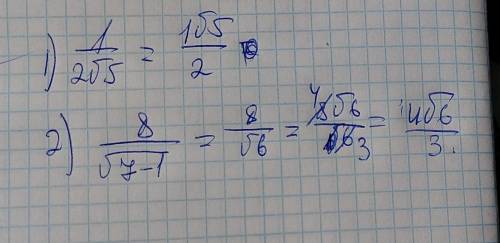 1) 1/2√5 = 1√5/2
2) 8/√7-1 = 8/√6 = 8√6/6 = 4√6/3.